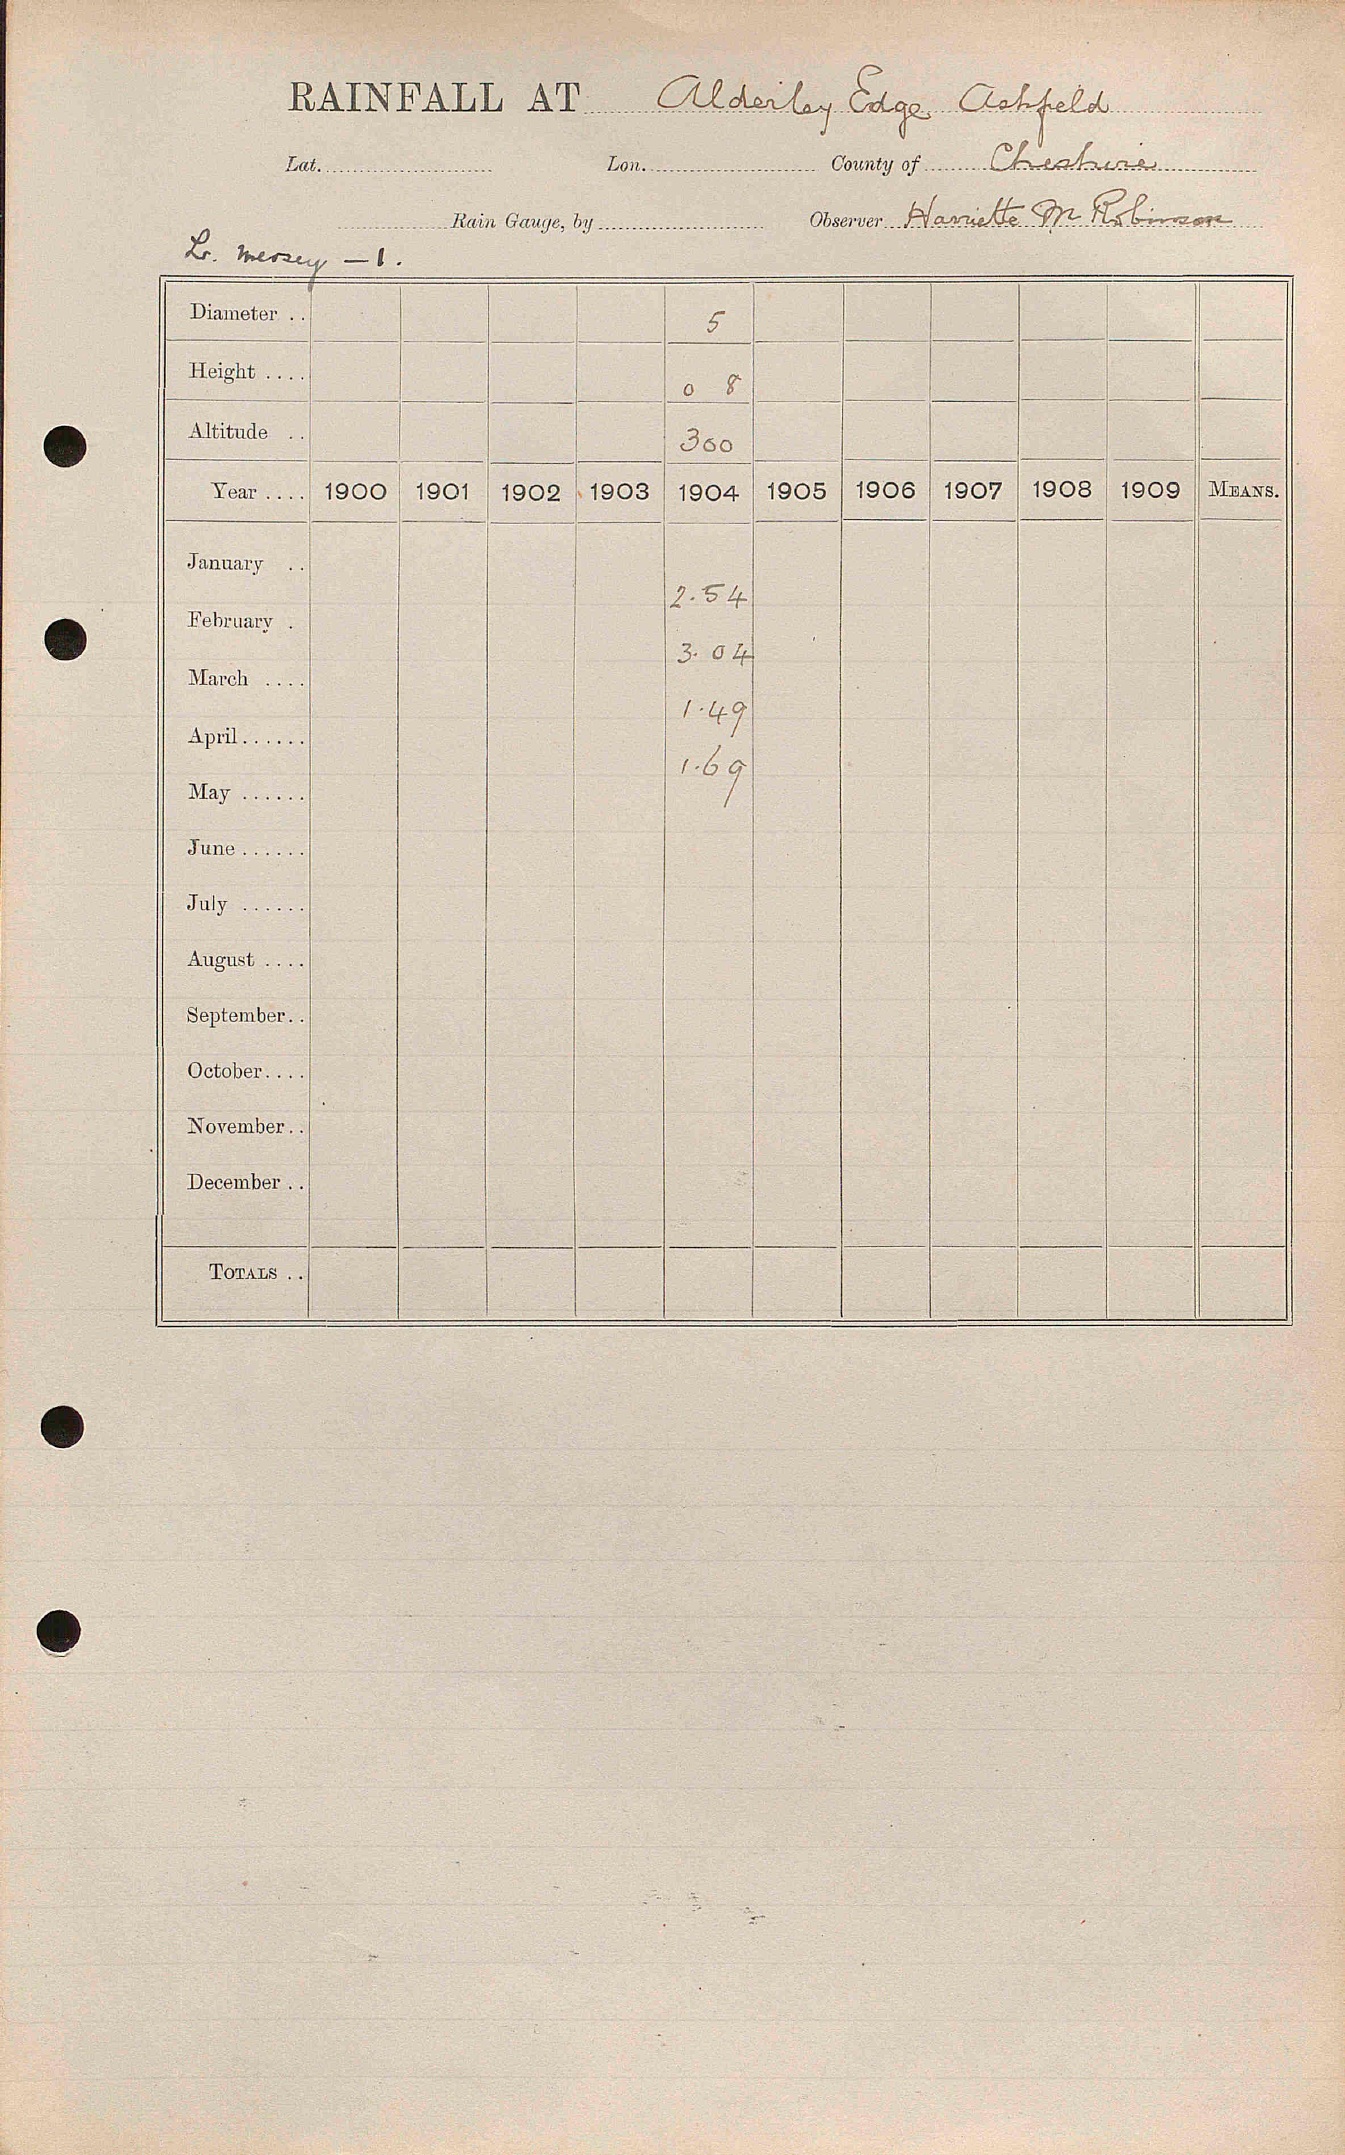 RAINFALL AT Alderley Edge, Ashfield
Lat. Lon. County of Cheshire
Rain Gauge, by Observer Harriette M Robinson
Lr. Mersey — 1.
Diameter .. 5
Height .... 0 8
Altitude .. 300
Year .... 1900 1901 1902 1903 1904 1905 1906 1907 1908 1909 MEANS.
January ..
2.54
February .
3.04
March ....
1.49
April......
1.69
May ......
June ......
July ......
August ....
September..
October....
November..
December ..
TOTALS ..